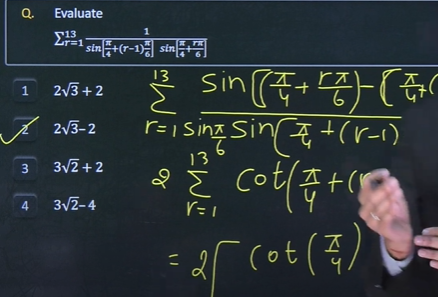 Q. Evaluate
∑_{r=1}^{13} 1 / (sin[π/4+(r−1)π/6] sin[π/4+rπ/6])
1 2√3 + 2
2 2√3−2
3 3√2 + 2
4 3√2−4
13
∑ sin[(π/4 + rπ/6) − (π/4 + (
r=1 sin π/6 sin(π/4 + (r−1)
13
2 ∑ cot(π/4 + (r
r=1
= 2[ cot(π/4)